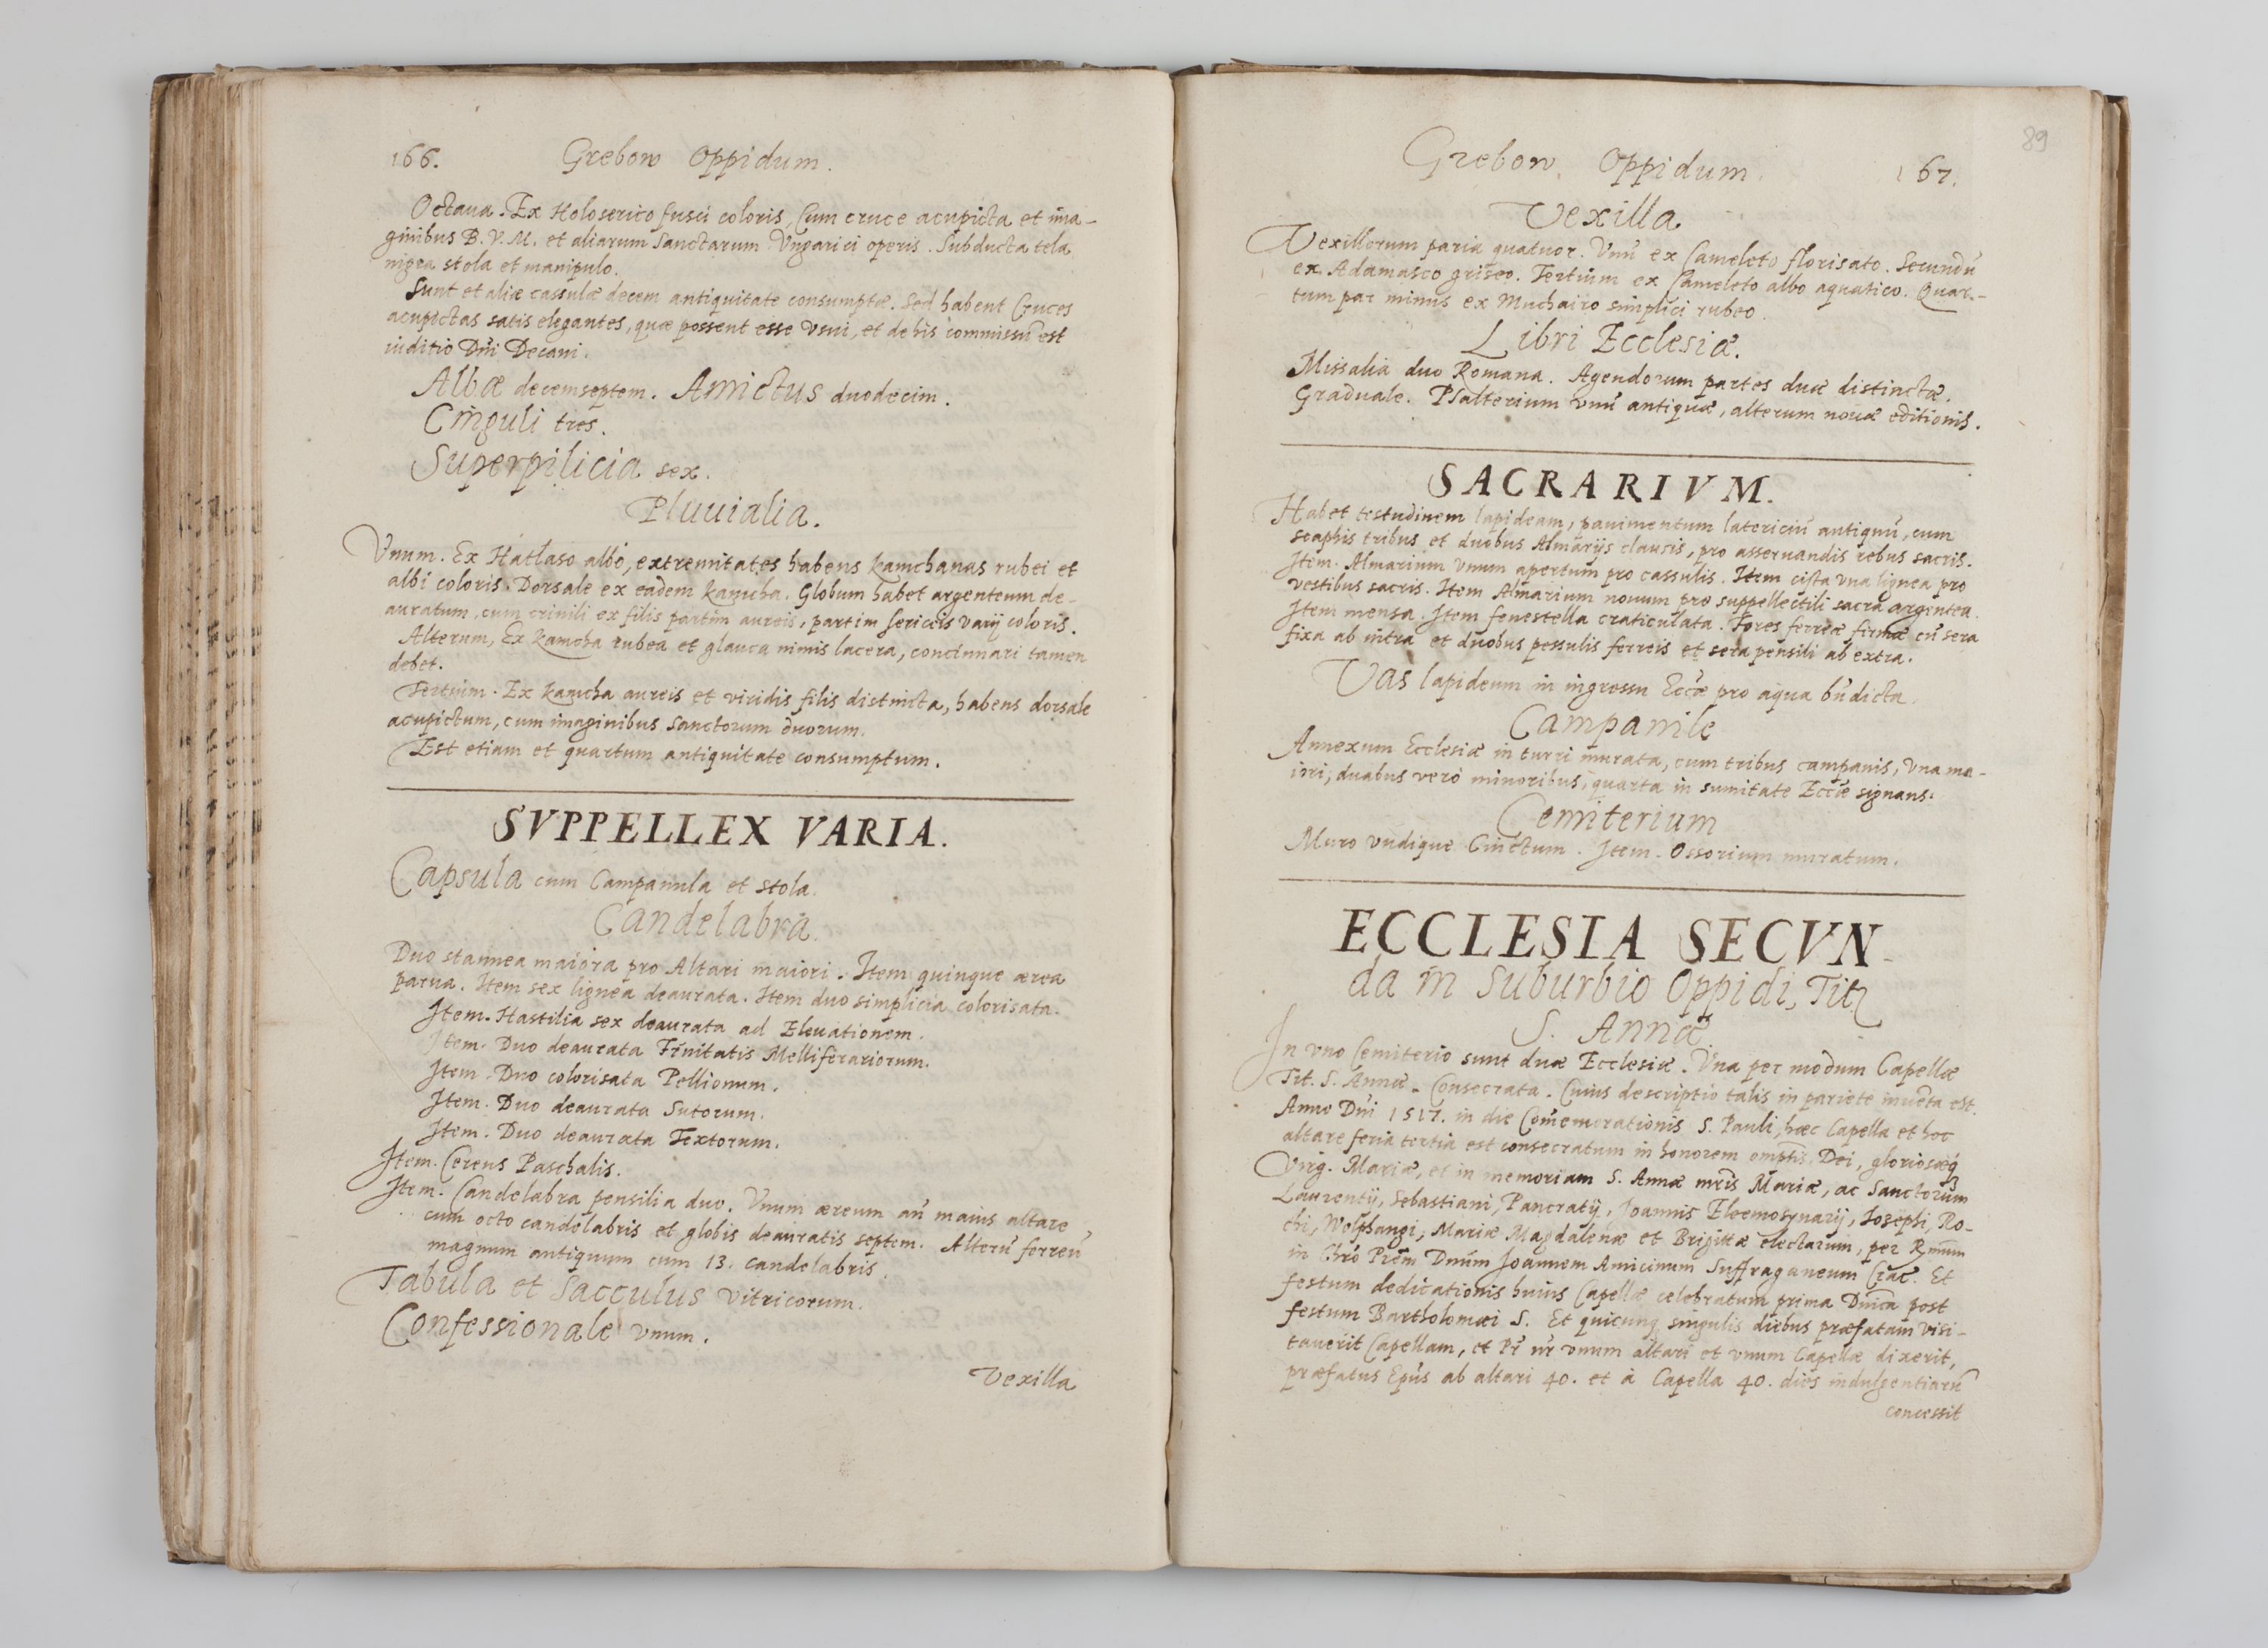 166. Grebow Oppidum.
Octaua. Ex Holoserico fusci coloris, Cum cruce acupicta et ima-
ginibus B. V. M. et aliarum Sanctarum Vngarici operis. Subducta tela
nigra stola et manipulo.
Sunt et aliæ cassulæ decem antiquitate consumptæ. Sed habent Cruces
acupictas satis elegantes, quæ possent esse vsui, et de his commissū est
iuditio Dñi Decani.
Albæ decemseptem. Amictus duodecim.
Cinguli tres.
Superpilicia sex.
Pluuialia.
Vnum. Ex Hatlaso albo, extremitates habens kamchanas rubei et
albi coloris. Dorsale ex eadem kamcha. Globum habet argenteum de-
auratum, cum crinili ex filis partim aureis, partim sericeis varij coloris.
Alterum, Ex kamcha rubea et glauca nimis lacera, concinnari tamen
debet.
Tertium. Ex kamcha aureis et viridis filis distincta, habens dorsale
acupictum, cum imaginibus Sanctorum duorum.
Est etiam et quartum antiquitate consumptum.
SVPPELLEX VARIA.
Capsula cum Campanula et stola.
Candelabra.
Duo stannea maiora pro Altari maiori. Item quinque ærea
parua. Item sex lignea deaurata. Item duo simplicia colorisata.
Item. Hastilia sex deaurata ad Eleuationem.
Item. Duo deaurata Frinitatis Melliferariorum.
Item. Duo colorisata Pellionum.
Item. Duo deaurata Sutorum.
Item. Duo deaurata Textorum.
Item. Cereus Paschalis.
Item. Candelabra pensilia duo. Vnum æreum añ maius altare
cum octo candelabris et globis deauratis septem. Alterū ferreū
magnum antiquum cum 13. candelabris.
Tabula et Sacculus vitricorum.
Confessionale vnum.
Vexilla
89
Grebow. Oppidum. 167.
Vexilla
Vexillorum paria quatuor. Vnū ex Cameleto florisato. Secundū
ex Adamasco griseo. Tertium ex Cameleto albo aquatico. Quar-
tum par minus ex Muchairo simplici rubeo.
Libri Ecclesiæ.
Missalia duo Romana. Agendorum partes duæ distinctæ.
Graduale. Psalterium vnū antiquæ, alterum nouæ editionis.
SACRARIVM.
Habet testudinem lapideam, pauimentum latericiū antiquū, cum
scaphis tribus et duobus Almarijs clausis, pro asseruandis rebus sacris.
Item. Almarium vnum apertum pro cassulis. Item cista vna lignea pro
vestibus sacris. Item Almarium nouum pro suppellectili sacra argentea.
Item mensa. Item fenestella craticulata. Fores ferreæ firmæ cū sera
fixa ab intra et duobus pessulis ferreis et sera pensili ab extra.
Vas lapideum in ingressu Eccæ pro aqua bñdicta.
Campanile
Annexum Ecclesiæ in turri murata, cum tribus campanis, vna ma-
iori, duabus verò minoribus, quarta in sumitate Eccæ signans.
Cemiterium
Muro vndique Cinctum. Item. Ossorium muratum.
ECCLESIA SECVN-
da in Suburbio Oppidi, Tit.
S. Annæ
In vno Cemiterio sunt duæ Ecclesiæ. Vna per modum Capellæ
Tit. S. Annæ. Consecrata. Cuius descriptio talis in pariete inuēta est.
Anno Dñi 1517. in die Comemorationis S. Pauli, hæc Capella et hoc
altare feria tertia est consecratum in honorem omptis. Dei, gloriosæq
Virg. Mariæ, et in memoriam S. Annæ mris Mariæ, ac Sanctorum
Laurentij, Sebastiani, Pancratij, Ioannis Eleemosynarij, Iosephi, Ro-
chi, Wolphangi, Mariæ Magdalenæ et Brigittæ electarum, per Rmum
in Chrō Prēm Dnūm Joannem Amicinum Suffraganeum Crac. Et
festum dedicationis huius Capellæ celebratum prima Dnica post
festum Bartholomæi S. Et quicunq singulis diebus præfatam visi-
tauerit Capellam, et Pr̃ nr̃ vnum altari et vnum Capellæ dixerit,
præfatus Ep̃us ab altari 40. et à Capella 40. dies indulgentiarū
concessit